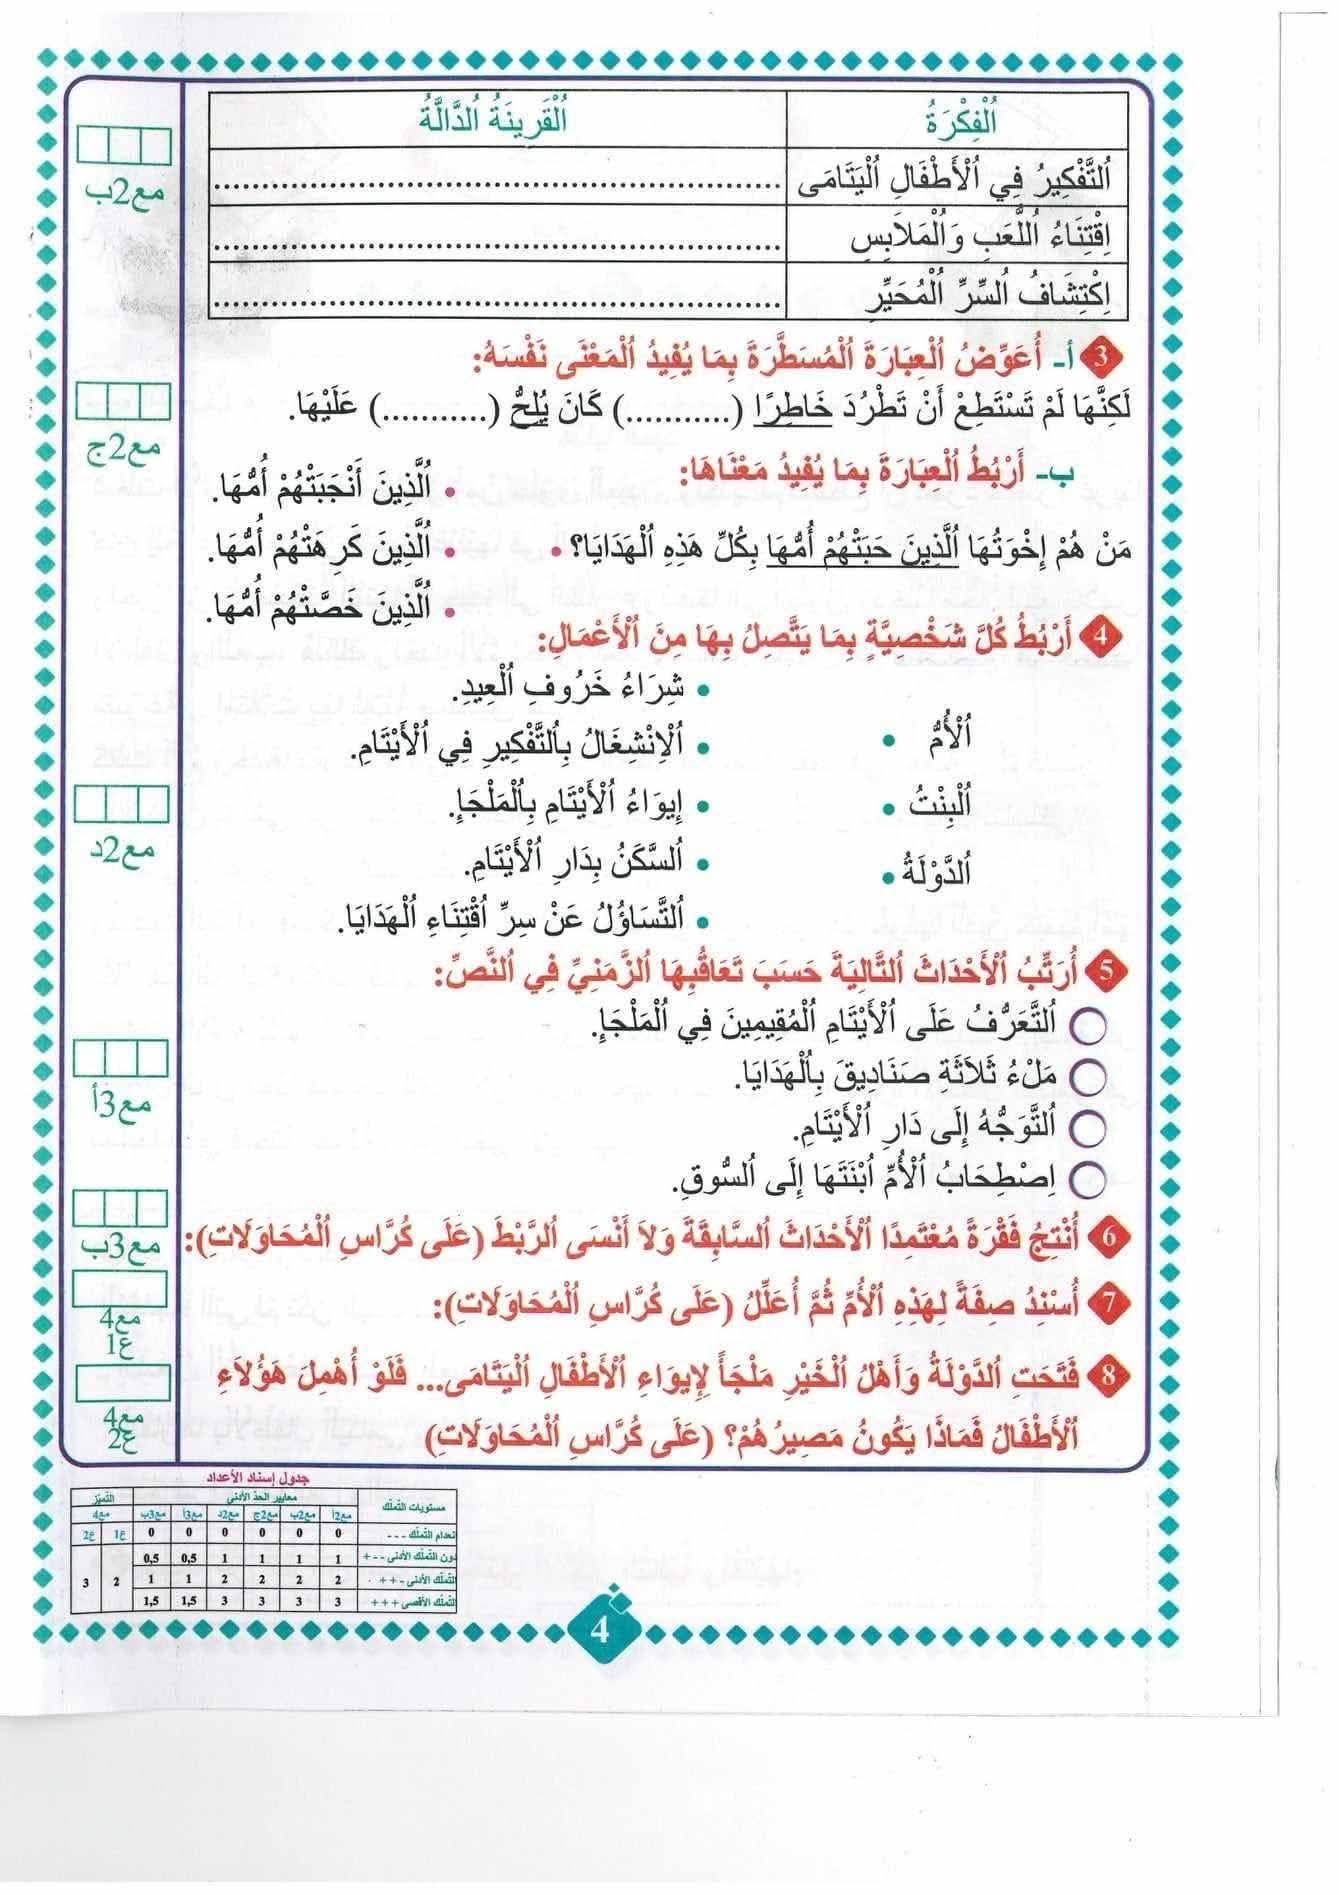 اُلْفِكْرَةُ	اُلْقَرِينَةُ اُلدَّالَّةُ
اُلتَّفْكِيرُ فِي اُلْأَطْفَالِ اُلْيَتَامَى	..........
اِقْتِنَاءُ اُللَّعَبِ وَاُلْمَلَابِسِ	..........
اِكْتِشَافُ اُلسِّرِّ اُلْمُحَيِّرِ	..........
مع2ب
3 أ- أُعَوِّضُ اُلْعِبَارَةَ اُلْمُسَطَّرَةَ بِمَا يُفِيدُ اُلْمَعْنَى نَفْسَهُ:
لَكِنَّهَا لَمْ تَسْتَطِعْ أَنْ تَطْرُدَ خَاطِرًا (...........) كَانَ يُلِحُّ (...........) عَلَيْهَا.
مع2ج
ب- أَرْبُطُ اُلْعِبَارَةَ بِمَا يُفِيدُ مَعْنَاهَا:
• اُلَّذِينَ أَنْجَبَتْهُمْ أُمُّهَا.
مَنْ هُمْ إِخْوَتُهَا اُلَّذِينَ حَبَتْهُمْ أُمُّهَا بِكُلِّ هَذِهِ اُلْهَدَايَا؟ •	• اُلَّذِينَ كَرِهَتْهُمْ أُمُّهَا.
• اُلَّذِينَ خَصَّتْهُمْ أُمُّهَا.
4 أَرْبُطُ كُلَّ شَخْصِيَّةٍ بِمَا يَتَّصِلُ بِهَا مِنَ اُلْأَعْمَالِ:
• شِرَاءُ خَرُوفِ اُلْعِيدِ.
اُلْأُمُّ •	• اُلْاِنْشِغَالُ بِاُلتَّفْكِيرِ فِي اُلْأَيْتَامِ.
اُلْبِنْتُ •	• إِيوَاءُ اُلْأَيْتَامِ بِاُلْمَلْجَإِ.
اُلدَّوْلَةُ •	• اُلسَّكَنُ بِدَارِ اُلْأَيْتَامِ.
• اُلتَّسَاؤُلُ عَنْ سِرِّ اُقْتِنَاءِ اُلْهَدَايَا.
مع2د
5 أُرَتِّبُ اُلْأَحْدَاثَ اُلتَّالِيَةَ حَسَبَ تَعَاقُبِهَا اُلزَّمَنِيِّ فِي اُلنَّصِّ:
اُلتَّعَرُّفُ عَلَى اُلْأَيْتَامِ اُلْمُقِيمِينَ فِي اُلْمَلْجَإِ.
مَلْءُ ثَلَاثَةِ صَنَادِيقَ بِاُلْهَدَايَا.
اُلتَّوَجُّهُ إِلَى دَارِ اُلْأَيْتَامِ.
اِصْطِحَابُ اُلْأُمِّ اُبْنَتَهَا إِلَى اُلسُّوقِ.
مع3أ
6 أُنْتِجُ فَقْرَةً مُعْتَمِدًا اُلْأَحْدَاثَ اُلسَّابِقَةَ وَلاَ أَنْسَى اُلرَّبْطَ (عَلَى كُرَّاسِ اُلْمُحَاوَلَاتِ):
مع3ب
7 أُسْنِدُ صِفَةً لِهَذِهِ اُلْأُمِّ ثُمَّ أُعَلِّلُ (عَلَى كُرَّاسِ اُلْمُحَاوَلَاتِ):
مع4
ع1
8 فَتَحَتِ اُلدَّوْلَةُ وَأَهْلُ اُلْخَيْرِ مَلْجَأً لِإِيوَاءِ اُلْأَطْفَالِ اُلْيَتَامَى... فَلَوْ أُهْمِلَ هَؤُلَاءِ
اُلْأَطْفَالُ فَمَاذَا يَكُونُ مَصِيرُهُمْ؟ (عَلَى كُرَّاسِ اُلْمُحَاوَلَاتِ)
مع4
ع2
جدول إسناد الأعداد
مستويات التملك	معايير الحد الأدنى	التميّز
مع2أ	مع2ب	مع2ج	مع2د	مع3أ	مع3ب	مع4
انعدام التملك - - -	0	0	0	0	0	0	ع1	ع2
دون التملك الأدنى + - -	1	1	1	1	0,5	0,5
التملك الأدنى + + -	2	2	2	2	1	1	2	3
التملك الأقصى + + +	3	3	3	3	1,5	1,5
4